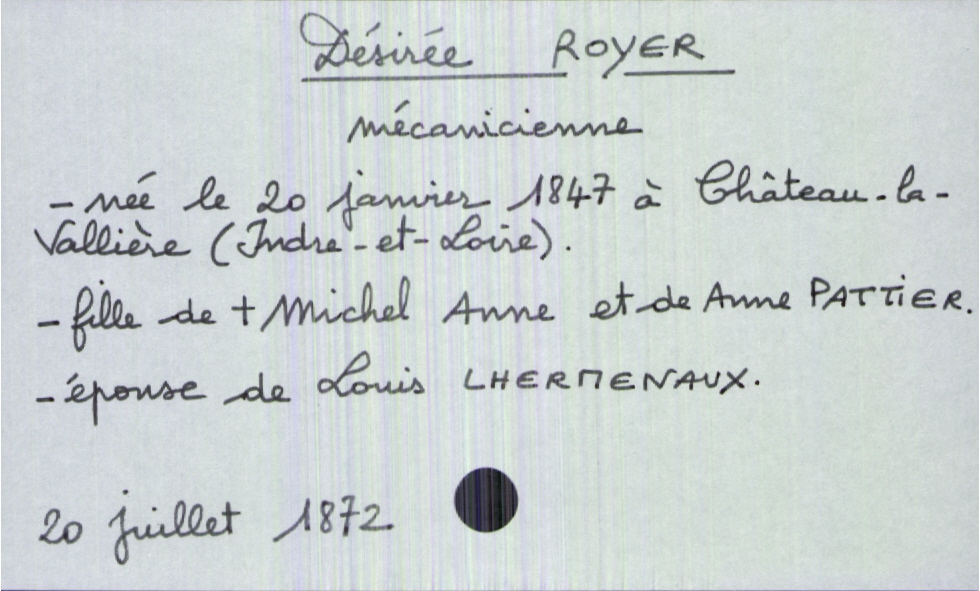 Désirée ROYER
mécanicienne
- née le 20 janvier 1847 à Château-la-
Vallière (Indre-et-Loire).
- fille de + Michel Anne et de Anne PATTIER.
- épouse de Louis LHERMENAUX.
20 juillet 1872